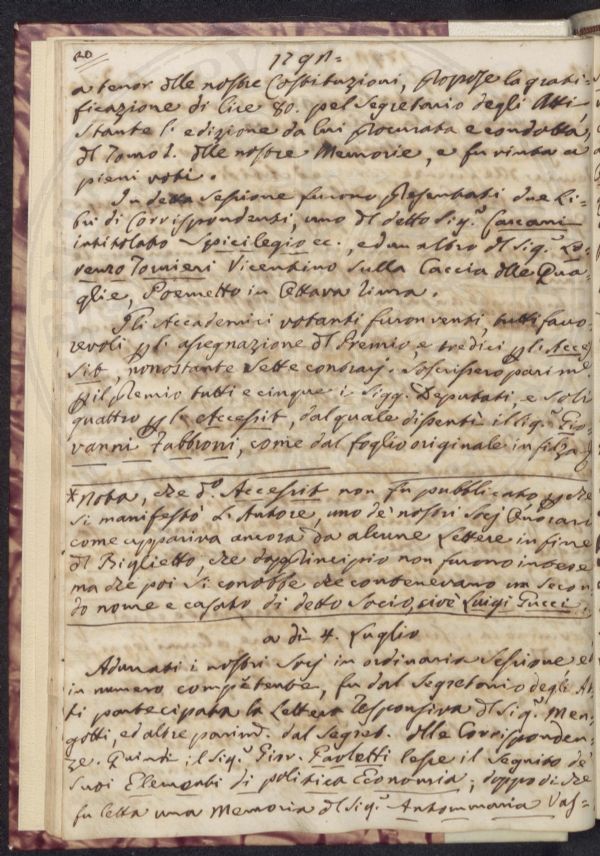 20
1791=
a tenor dlle nostre Costituzioni, propose la grati=
ficazione di lire 80. pel Segretario degli Atti,
stante l'edizione da lui procurata e condotta,
dl Tomo I. dlle nostre Memorie, e fu vinta a
pieni voti.
In detta Sessione furono presentati due Li=
bri di Corrispondenti, uno dl detto Sig.r
intitolato Spicilegio ec., ed un altro dl Sig.r Lo=
renzo Tornieri Vicentino sulla Caccia dlle Qua=
glie, Poemetto in Ottava rima.
Gli Accademici votanti furon venti, tutti favo=
revoli pll' assegnazione dl Premio, e tredici pll' Acces
sit, nonostante sette contrarj. Soscrissero parim.e
p il premio tutti e cinque i Sigg. Deputati, e soli
quattro p le Accessit, dal quale dissentì il Sig.r Gio=
vanni Fabbroni, come dal foglio originale in filza
*Nota, che d.o Accessit non fu pubblicato, pche
si manifestò l'Autore, uno de' nostri Socj
come appariva ancora da alcune Lettere in fine
dl Biglietto, che dapprincipio non furono intese
ma che poi si conobbe che contenevano un secon
do nome e casato di detto Socio, cioè Luigi Tucci.
a dì 4. Luglio
Adunati i nostri Socj in ordinaria Sessione et
in numero competente, fu dal Segretario degli At
ti partecipata la Lettera responsiva dl Sig.r Men
gotti, ed altre parim. dal Segret. dlle Corrisponden=
ze. Quindi il Sig.r Giov. Paoletti lesse il Seguito de'
suoi Elementi di politica Economia; doppo di che
fu letta una Memoria dl Sig.r Antommaria Vas=